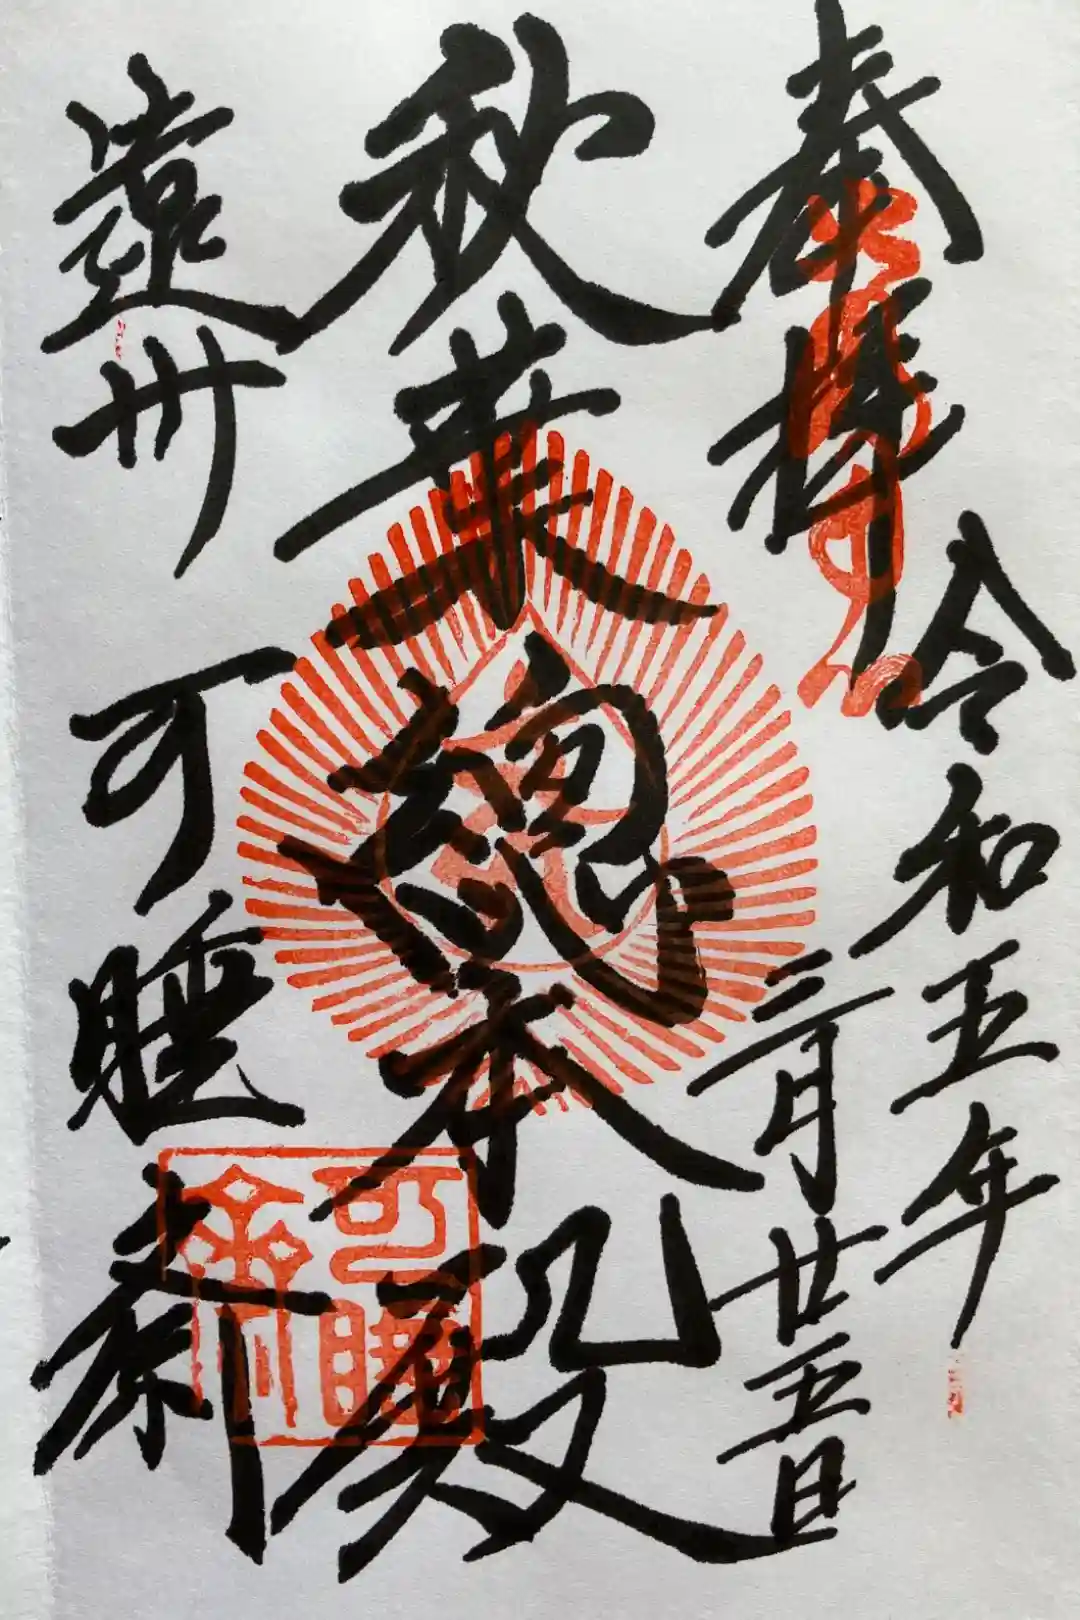 奉拝
令和五年
三月廿五日
秋葉總本殿
遠州
可睡齋
可睡
齋